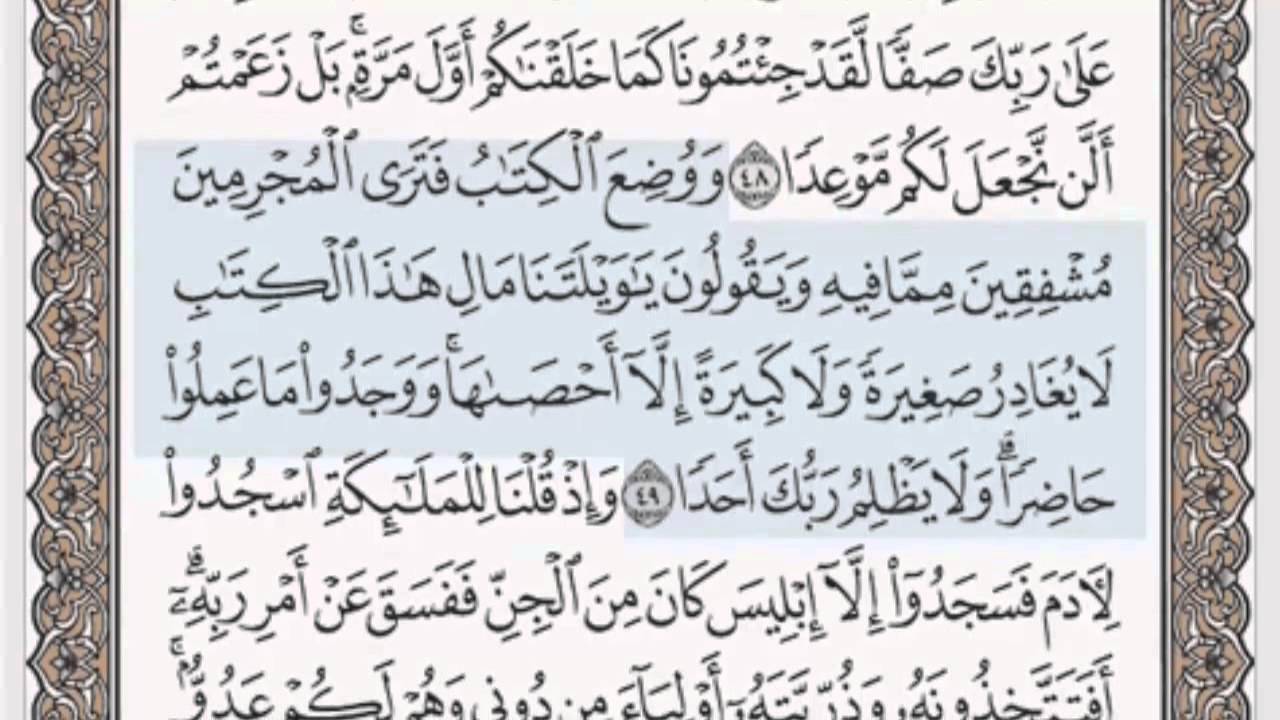 عَلَىٰ رَبِّكَ صَفًّا لَّقَدۡ جِئۡتُمُونَا كَمَا خَلَقۡنَٰكُمۡ أَوَّلَ مَرَّةِۭۚ بَلۡ زَعَمۡتُمۡ
أَلَّن نَّجۡعَلَ لَكُم مَّوۡعِدٗا ٤٨ وَوُضِعَ ٱلۡكِتَٰبُ فَتَرَى ٱلۡمُجۡرِمِينَ
مُشۡفِقِينَ مِمَّا فِيهِ وَيَقُولُونَ يَٰوَيۡلَتَنَا مَالِ هَٰذَا ٱلۡكِتَٰبِ
لَا يُغَادِرُ صَغِيرَةٗ وَلَا كَبِيرَةً إِلَّآ أَحۡصَىٰهَاۚ وَوَجَدُواْ مَا عَمِلُواْ
حَاضِرٗاۗ وَلَا يَظۡلِمُ رَبُّكَ أَحَدٗا ٤٩ وَإِذۡ قُلۡنَا لِلۡمَلَٰٓئِكَةِ ٱسۡجُدُواْ
لِأٓدَمَ فَسَجَدُوٓاْ إِلَّآ إِبۡلِيسَ كَانَ مِنَ ٱلۡجِنِّ فَفَسَقَ عَنۡ أَمۡرِ رَبِّهِۦٓۗ
أَفَتَتَّخِذُونَهُۥ وَذُرِّيَّتَهُۥٓ أَوۡلِيَآءَ مِن دُونِي وَهُمۡ لَكُمۡ عَدُوُّۢۚ